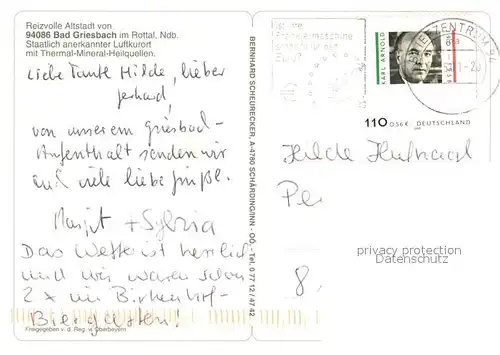 Reizvolle Altstadt von
94086 Bad Griesbach im Rottal, Ndb.
Staatlich anerkannter Luftkurort
mit Thermal-Mineral-Heilquellen.
Liebe Tante Hilde, lieber
Gerhard,
von unserem Griesbach-
Aufenthalt senden wir
euch viele liebe Grüße.
Margit + Sylvia
Das Wetter ist herrlich
und wir waren schon
2 x im Birkenhof-
Biergarten!
Freigegeben v. d. Reg. v. Oberbayern
BERNHARD SCHEURECKER, A-4780 SCHÄRDING/INN - OÖ. • Tel. 0 77 12 / 47 42
ZENTRUM 94
KARL ARNOLD
110 0,56€ DEUTSCHLAND
Hilde
Pe
privacy protection
Datenschutz
8,